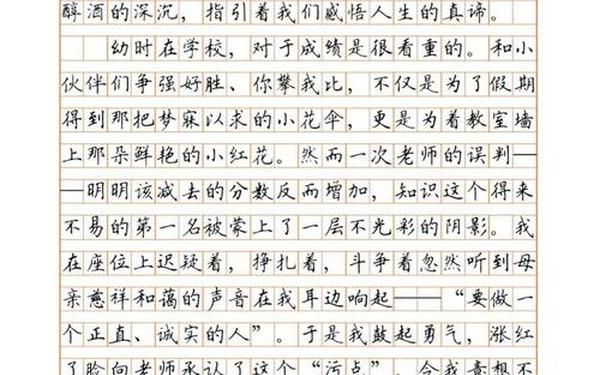 醇酒的深沉，指引着我们感悟人生的真谛。
幼时在学校，对于成绩是很看重的。和小
伙伴们争强好胜、你攀我比，不仅是为了假期
得到那把梦寐以求的小花伞，更是为着教室墙
上那朵鲜艳的小红花。然而一次老师的误判—
—明明该减去的分数反而增加，知识这个得来
不易的第一名被蒙上了一层不光彩的阴影。我
在座位上迟疑着，挣扎着，斗争着忽然听到母
亲慈祥和蔼的声音在我耳边响起——“要做一
个正直、诚实的人”。于是我鼓起勇气，涨红
了脸向老师承认了这个“污点”。令我意想不